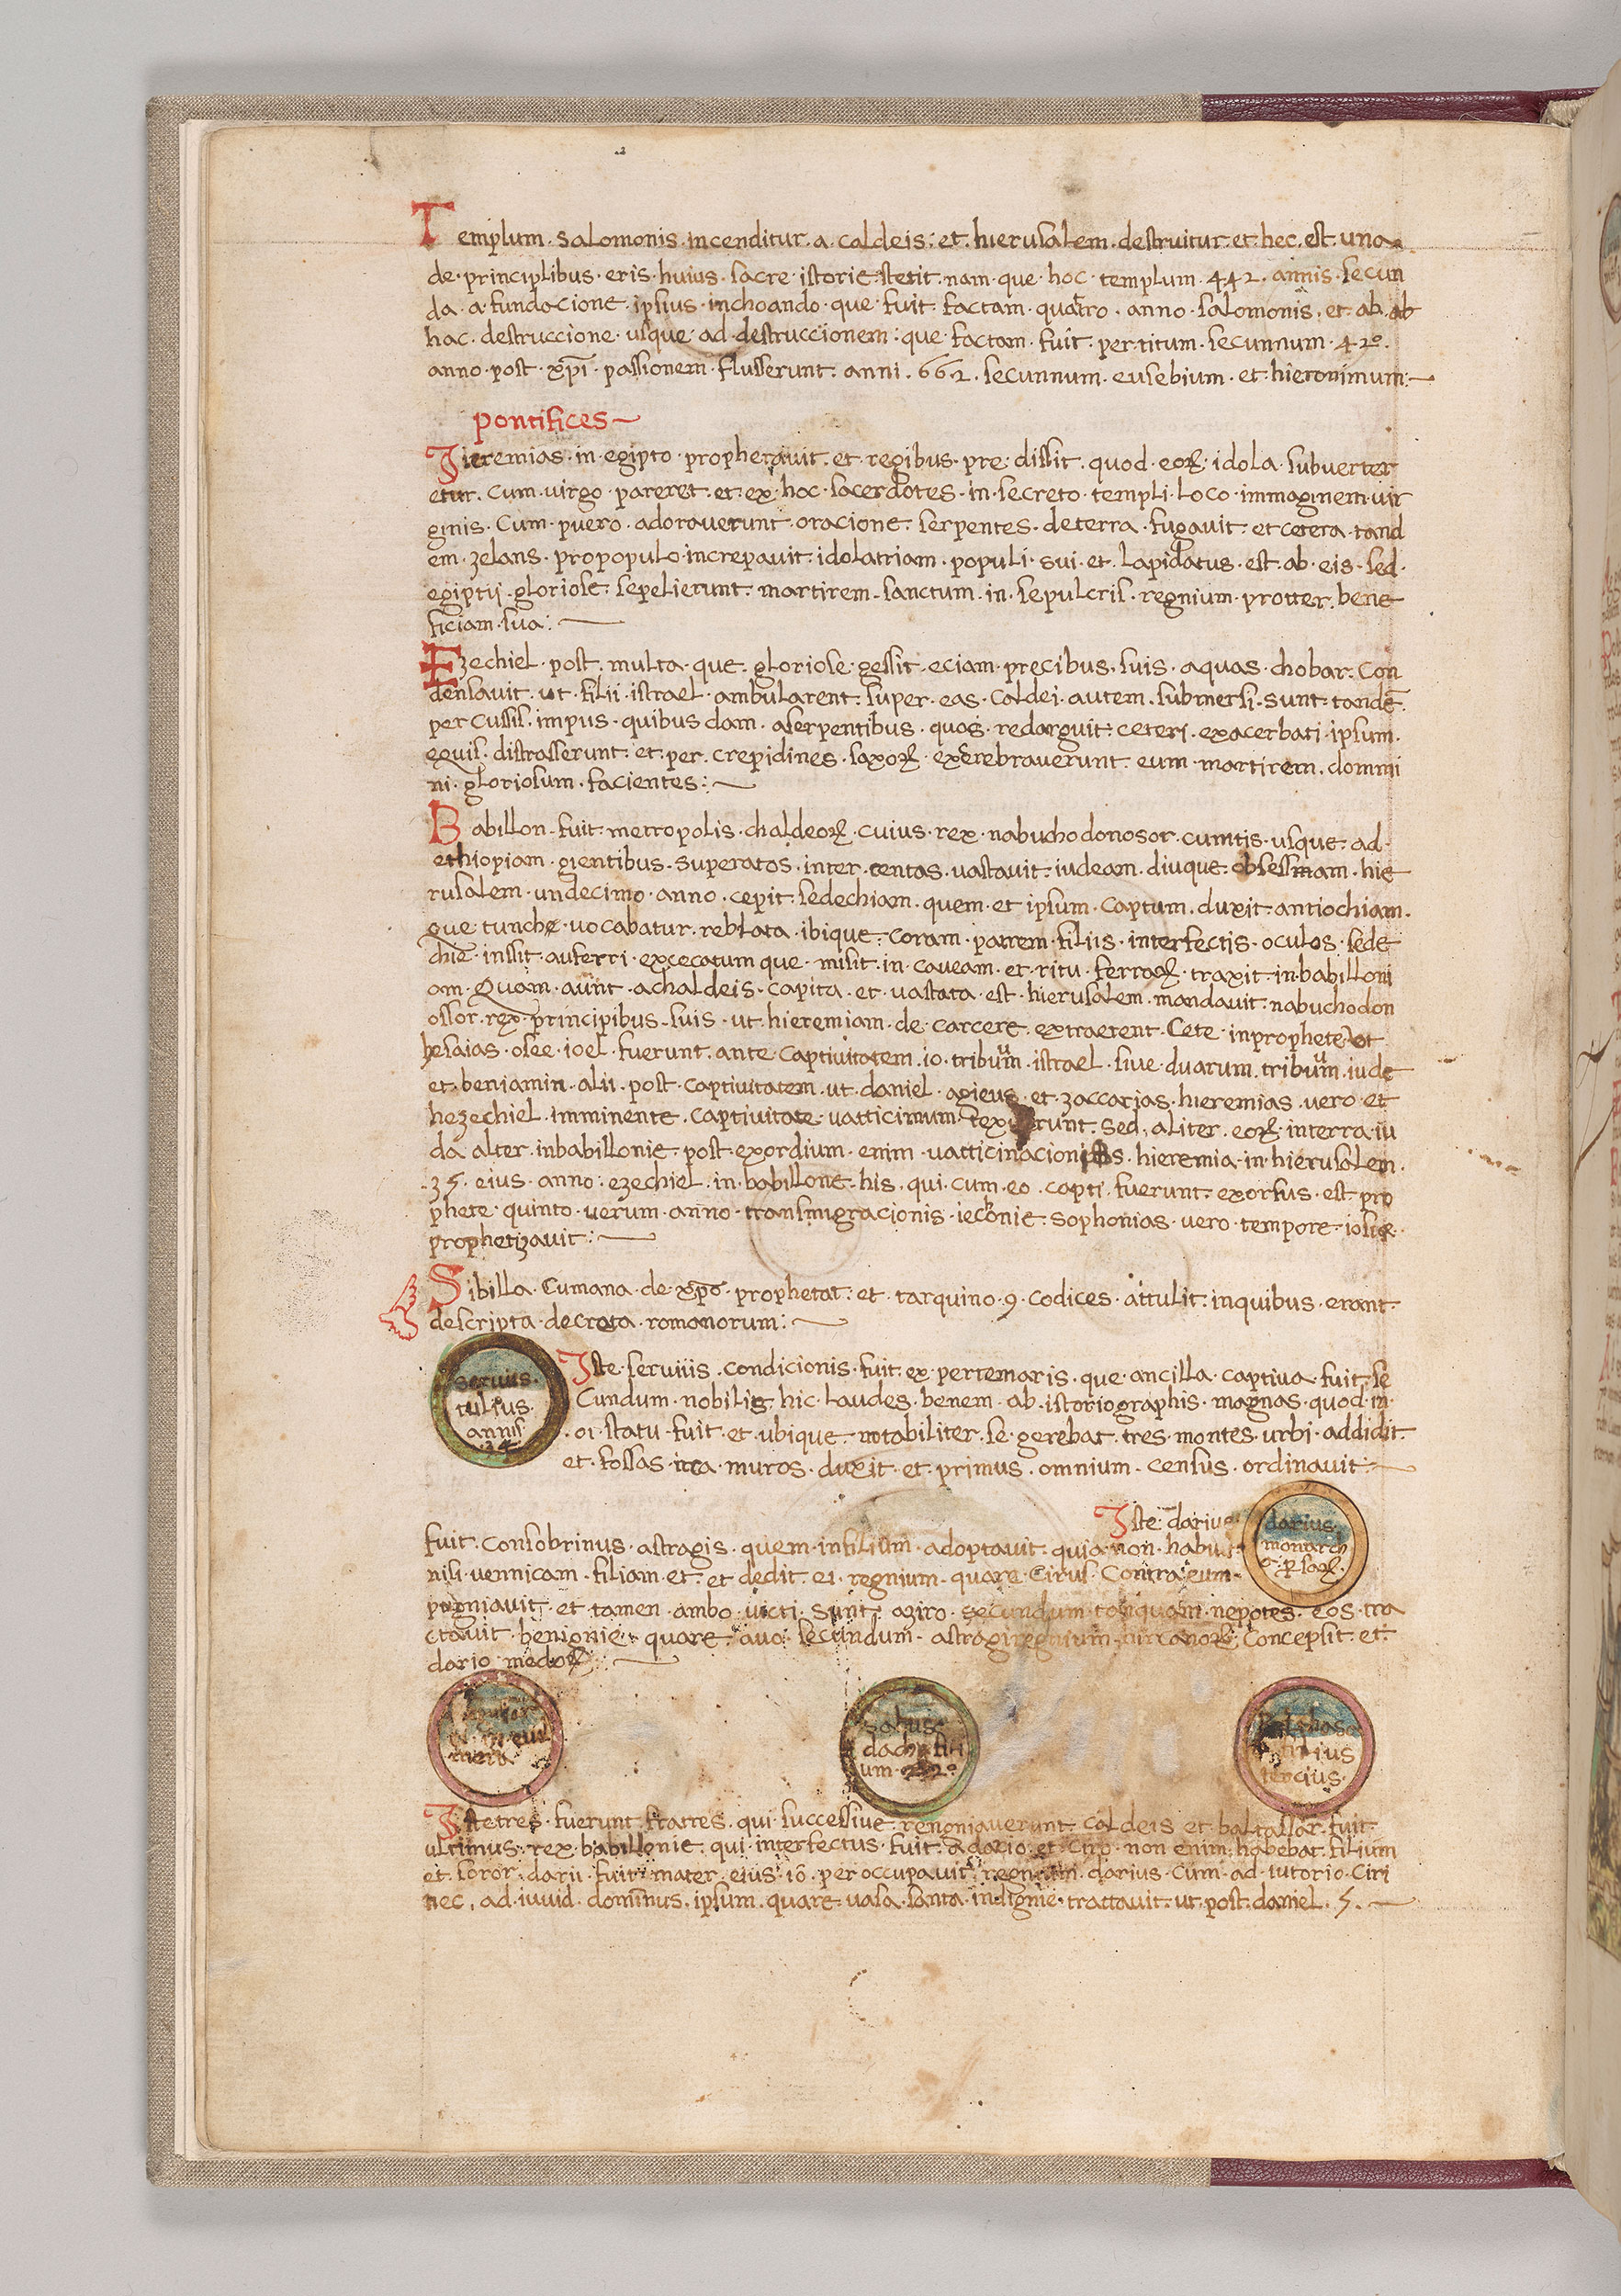 Templum · salomonis · incenditur · a · caldeis : et · hierusalem · destruitur · et · hec · est · una
de · principlibus · eris · huius · sacre · istorie · stetit · nam · que · hoc · templum · 442 · annis · secun
da · a · fundacione · ipsius · inchoando · que · fuit · factam · quarto · anno · salomonis · et · ab · ab
hac · destruccione · usque · ad · destruccionem : que · factam · fuit · per · titum · secunnum · 42º ·
anno · post · xpi̅ · passionem · flusserunt · anni · 662 · secunnum · eusebium · et · hieronimum :
pontifices
Jieremias · in · egipto · prophetauit · et · regibus · pre · dissit · quod · eoꝝ · idola · subuerter
etur · cum · virgo · pareret · et · ex · hoc · sacerdotes · in · secreto · templi · loco · immaginem · uir
ginis · Cum · puero · adoraverunt · oracione · serpentes · deterra · fugauit · et cetera · tand
em · zelans · propopulo · increpauit · idolatriam · populi · sui · et · lapidatus · est · ab · eis · sed ·
egiptij · gloriose · sepelierunt · martirem · sanctum · in · sepulcris · regnium · protter · bene
ficiam · sua :
Ezechiel · post · multa · que · gloriose · gessit · eciam · precibus · suis · aquas · chobar · Con
densauit · ut · filii · istrael · ambularent · super · eas · Caldei · autem · submersi · sunt · tandē
per cussis · impus · quibus dam · aserpentibus · quos · redarguit · ceteri · exacerbati · ipsum ·
equis · distrasserunt · et · per · crepidines · saxoꝝ · excerebrauerunt · eum · martirem · dommi
ni · gloriosum · facientes :
Babillon · fuit · metropolis · chaldeoꝝ · cuius · rex · nabuchodonosor · cumtis · usque · ad ·
ethiopiam · gientibus · superatos · inter · centas · uastauit · iudeam · diuque · obsessmam · hie
rusalem · undecimo · anno · cepit · sedechiam · quem · et · ipsum · Captum · duxit · antiochiam ·
que · tunche · uocabatur · reblata · ibique · Coram · patrem · filiis · interfectis · oculos · sede
chie · inssit · auferri · excecatum que · misit · in · caueam · et · ritu · ferraꝝ · traxit · in · babilloni
am · Quam · aunt · achaldeis · capita · et · uastata · est · hierusalem · mandauit · nabuchodon
ossor · rex · principibus · suis · ut · hieremiam · de · carcere · extraerent · Cete · inprophete · ut
hesaias · osee · ioel · fuerunt · ante · Captiuitatem · io · tribuum · istrael · siue · duarum · tribuum · iude
et · beniamin · alii · post · captiuitatem · ut · daniel · agieus · et · zaccarias · hieremias · uero · et
hezechiel · imminente · captiuitate · uatticinium · sed · aliter · eoꝝ · interra · iu
da · alter · inbabillonie · post · exordium · enim · uatticinacionis · hieremia · in · hierusalem ·
35 · eius · anno : ezechiel · in · babillone · his · qui · cum · eo · capti · fuerunt · exorsus · est · pro
phete · quinto · uerum · anno · transmigracionis · ieconie · sophonias · vero · tempore · iosie
prophetizauit :
Sibilla · Cumana · de · xpō · prophetat · et · tarquino · 9 · codices · attulit · inquibus · erant
descripta · decrata · romanorum :
seruius ·
tulius ·
annis
· 34 ·
Iste · seruiiis · condicionis · fuit · ex · pertemaris · que · ancilla · captiua · fuit · se
Cundum · nobilis · hic · laudes · benem · ab · istoriographis · magnas · quod · in ·
· oi · statu · fuit · et · ubique · notabiliter · se · gerebat · tres · montes · urbi · addidit
et · fossas · irca · muros · duxit · et · primus · omnium · census · ordinauit :
Iste · darius
darius
monarch
fuit · consobrinus · astragis · quem · infilium · adoptauit · quia · non · habuit
nisi · vennicam · filiam · et · et dedit · ei · regnium · quare · Cirus · Contra · eum ·
pugniauit · et · tamen · ambo · uicti · sunt · aziro · secundum · tanquam · nepotes · eos · tra
ctauit · benignie · quare · auo · secundum · astragi · regnium · hircanoꝝ · Concepsit · et ·
dario · medoꝝ :
dach · filii
um
filius
tercius ·
Iste tres · fuerunt · fratres · qui · successiue · rengniauerunt · caldeis · et · baltassar · fuit ·
ultimus · rex · babillonie · qui · interfectus · fuit · adario · et · Ciro · non · enim · habebat · filium
et · soror · darii · fuit · mater · eius · iō · per occupauit · regnium · darius · Cum · ad · iutorio · Ciri
nec · ad · iuuid · dominus · ipsum · quare · uasa · santa · indignie · trattauit · ut · post · daniel · 5 ·